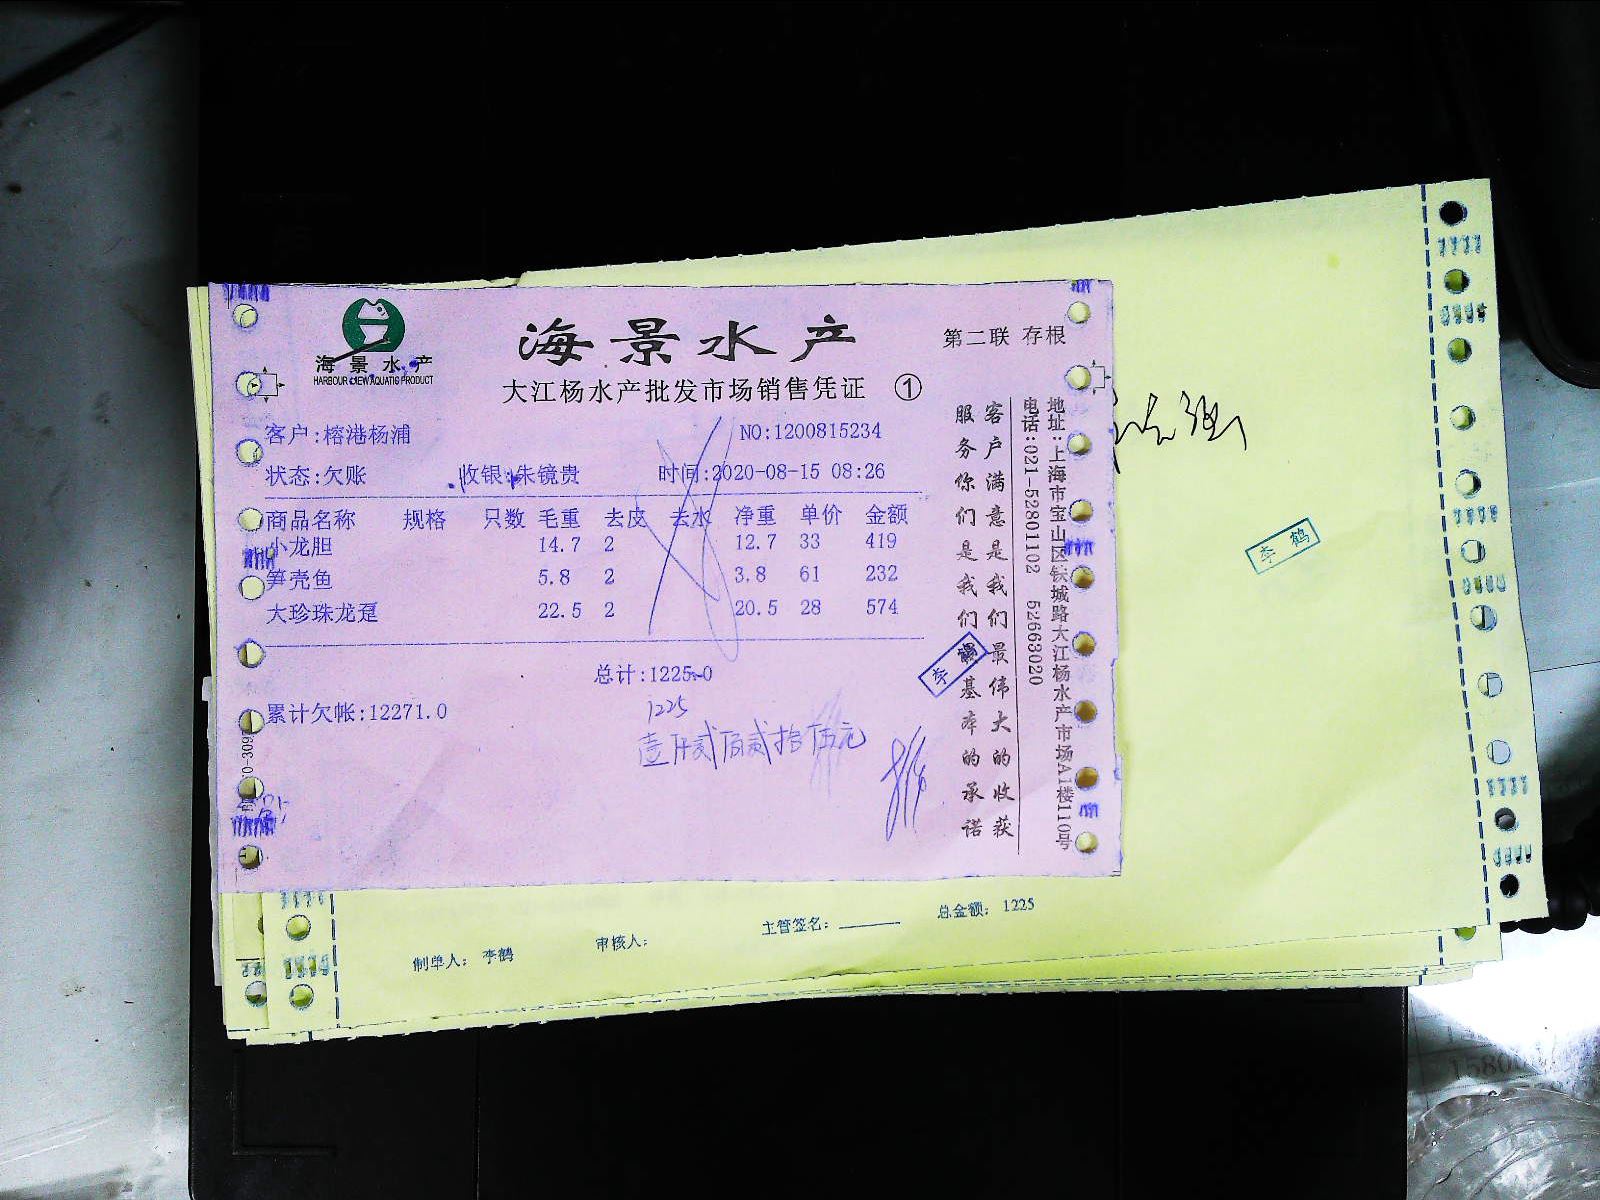 海景水产
HARBOUR VIEW AQUATIC PRODUCT
海景水产
第二联 存根
大江杨水产批发市场销售凭证 ①
客户:榕港杨浦
NO:1200815234
状态:欠账 收银:朱镜贵 时间:2020-08-15 08:26
商品名称 规格 只数 毛重 去皮 去水 净重 单价 金额
小龙胆 14.7 2 12.7 33 419
笋壳鱼 5.8 2 3.8 61 232
大珍珠龙趸 22.5 2 20.5 28 574
总计:1225.0
累计欠帐:12271.0
1225
壹仟贰佰贰拾伍元
客户满意是我们最伟大的收获
服务你们是我们最基本的承诺
地址:上海市宝山区铁城路大江杨水产市场A1楼110号
电话:021-52801102 52663020
李鹤
李鹤
制单人: 李鹤 审核人: 主管签名: 总金额: 1225